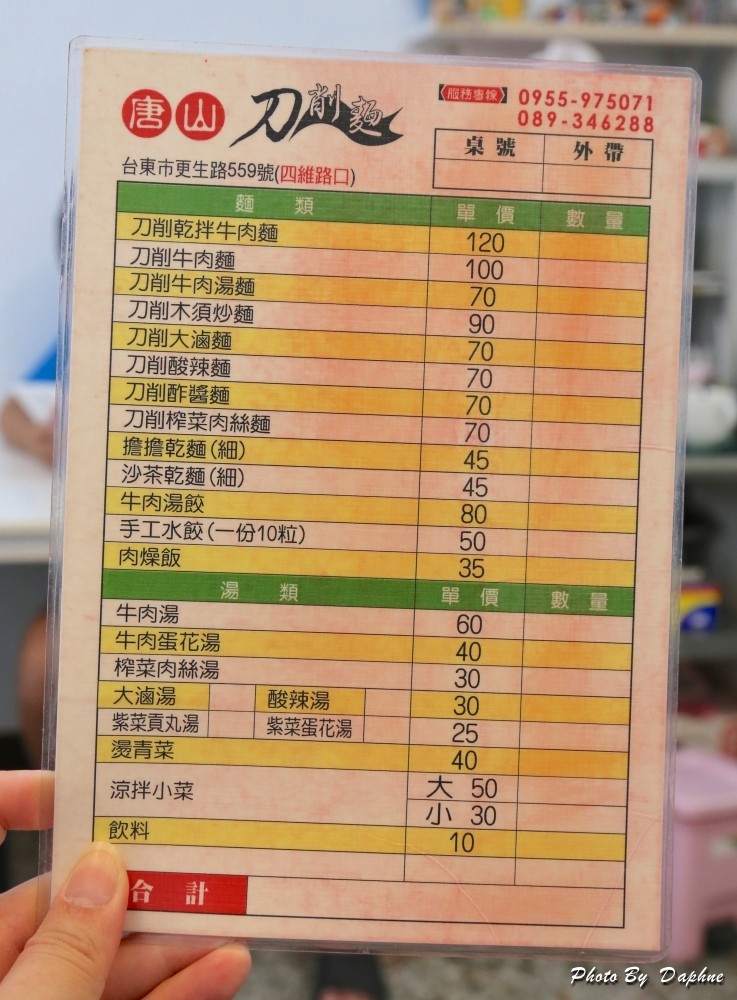 唐山 刀削麵
《服務專線》 0955-975071
089-346288
台東市更生路559號(四維路口)
桌號 外帶
麵類 單價 數量
刀削乾拌牛肉麵 120
刀削牛肉麵 100
刀削牛肉湯麵 70
刀削木須炒麵 90
刀削大滷麵 70
刀削酸辣麵 70
刀削酢醬麵 70
刀削榨菜肉絲麵 70
擔擔乾麵(細) 45
沙茶乾麵(細) 45
牛肉湯餃 80
手工水餃(一份10粒) 50
肉燥飯 35
湯類 單價 數量
牛肉湯 60
牛肉蛋花湯 40
榨菜肉絲湯 30
大滷湯 酸辣湯 30
紫菜貢丸湯 紫菜蛋花湯 25
燙青菜 40
涼拌小菜 大 50
小 30
飲料 10
合計
Photo By Daphne